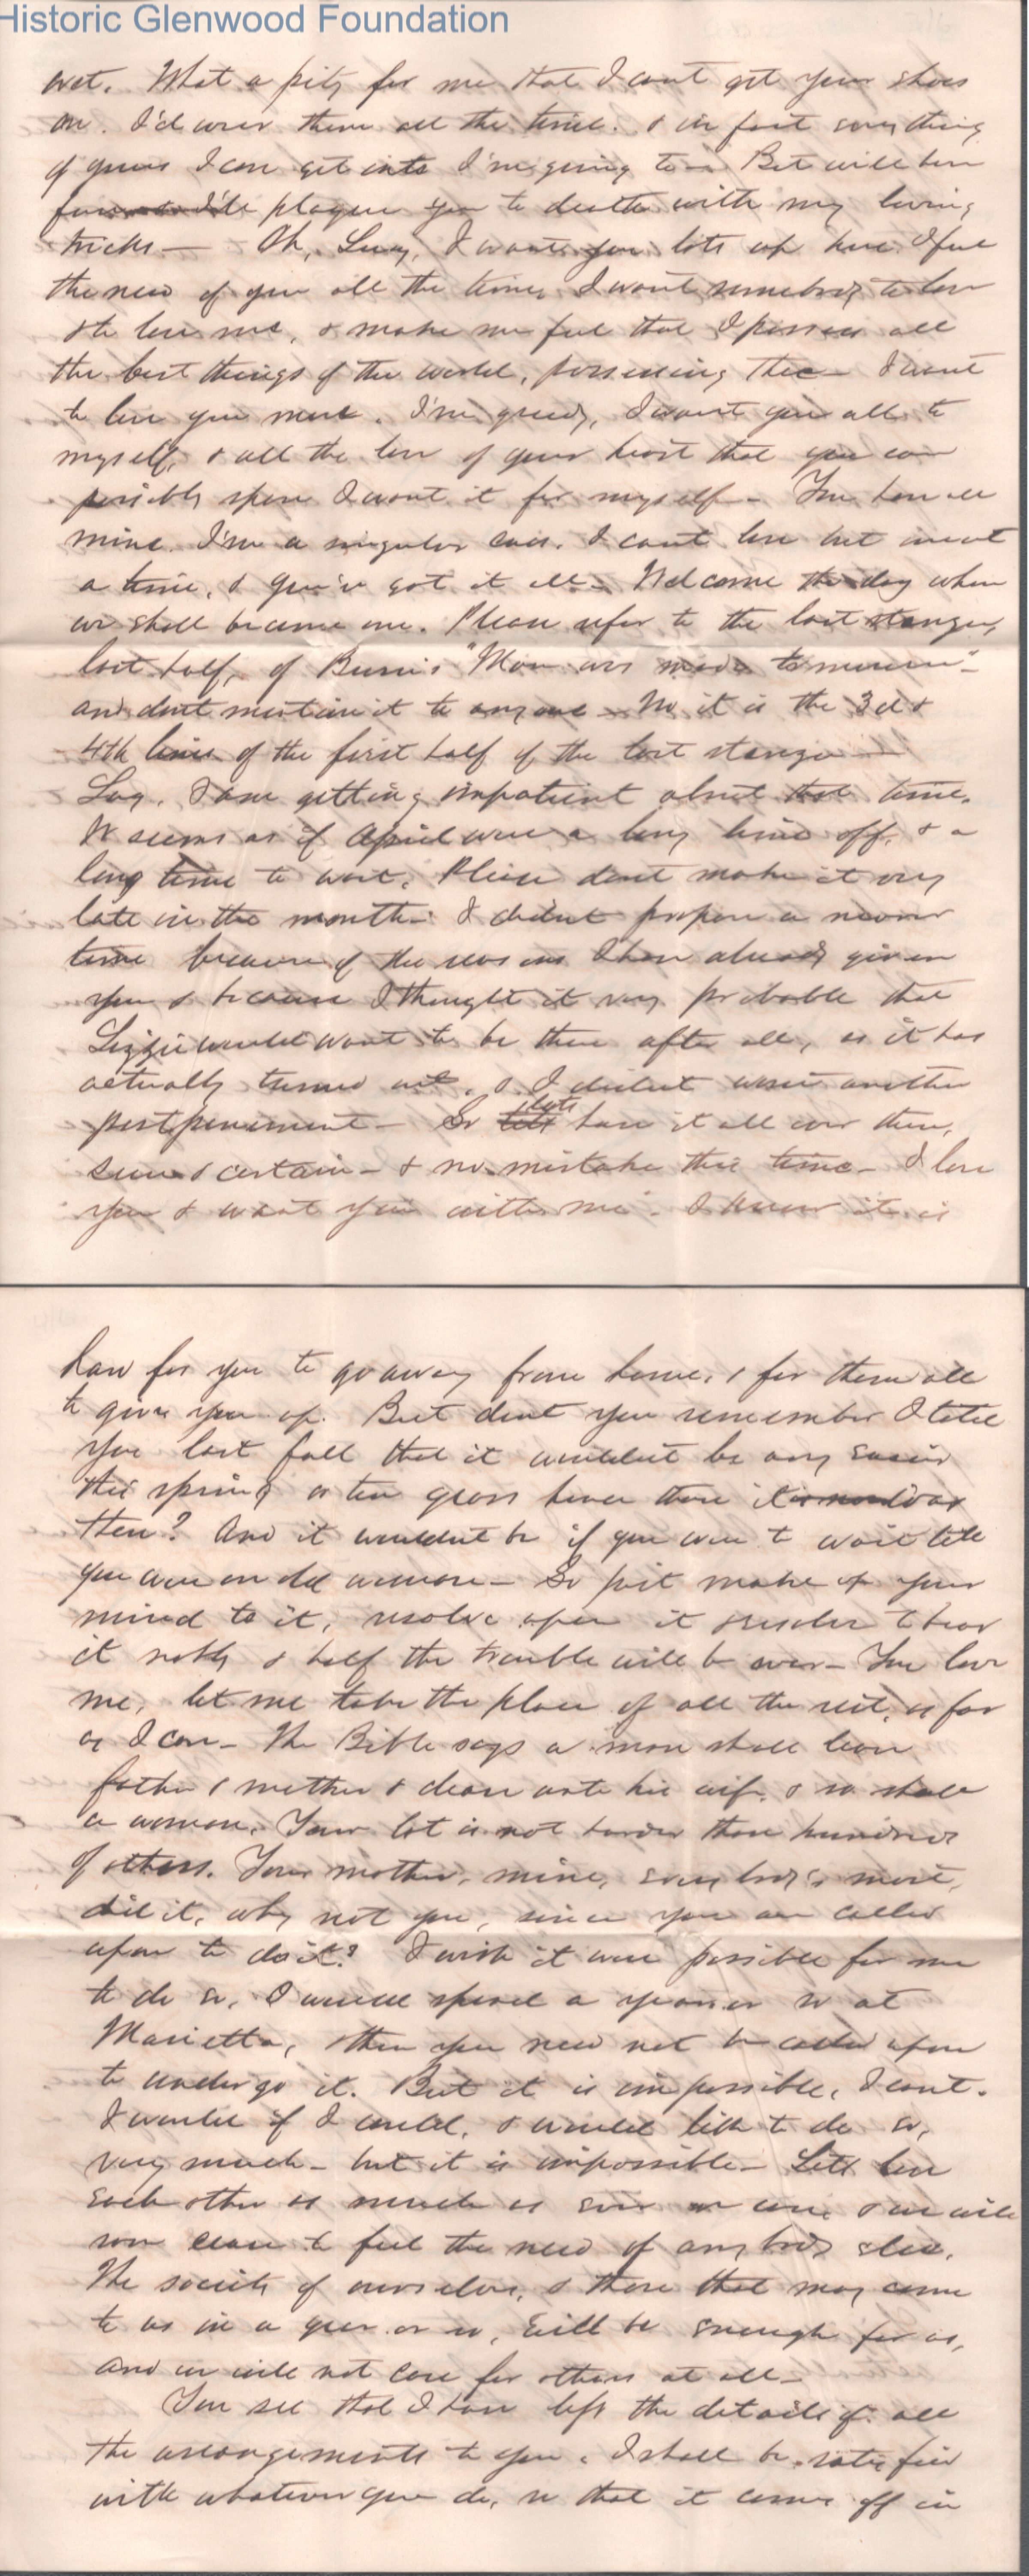 Historic Glenwood Foundation
wet. What a pity for me that I can't get your shoes
on. I'd wear them all the time. & in fact everything
of yours I can get into I'm going to — But will
plague you to death with my loving
tricks — Oh, Lucy, I want you lots up here. I feel
the need of you all the time. I want somebody to love
& to love me, & make me feel that I possess all
the best things of the world, possessing thee — I want
to love you more. I'm greedy, I want you all to
myself, & all the love of your heart that you can
possibly spare I want it for myself — You have all
mine. I'm a singular case. I can't love but one at
a time, & you've got it all — Welcome the day when
we shall become one. Please refer to the last stanza,
last half, of Burns's "Man was made to mourn" —
and don't mention it to anyone — No it is the 3d &
4th lines of the first half of the last stanza —
Lucy, I am getting impatient about that time.
It seems as if April were a long time off, & a
long time to wait. Please don't make it very
late in the month — I didn't propose a nearer
time because of the reasons I have already given
you & because I thought it very probable that
Lizzie would want to be there after all, as it has
actually turned out, & I didn't want another
postponement — So lets have it all over then,
sure & certain — & no mistake this time — I love
you & want you with me. I know it is
hard for you to go away from home, & for them all
to give you up. But don't you remember I told
you last fall that it wouldn't be any easier
this spring or ten years hence than it was
then? And it wouldn't be if you were to wait till
you were an old woman — So just make up your
mind to it, resolve upon it & resolve to bear
it nobly & half the trouble will be over — You love
me, let me take the place of all the rest, as far
as I can — The Bible says a man shall leave
father & mother & cleave unto his wife, & so shall
a woman. Your lot is not harder than hundreds
of others. Your mother, mine, everybody's mother,
did it, why not you, since you are called
upon to do it? I wish it were possible for me
to do so, I would spend a year or so at
Marietta, then you need not be called upon
to undergo it. But it is impossible, I can't.
I would if I could, & would like to do so,
very much — but it is impossible — Lets love
each other as much as ever we can, & we will
soon cease to feel the need of anybody else.
The society of ourselves, & those that may come
to us in a year or so, will be enough for us,
and we will not care for others at all —
You see that I have left the details of all
the arrangements to you. I shall be satisfied
with whatever you do, so that it comes off in